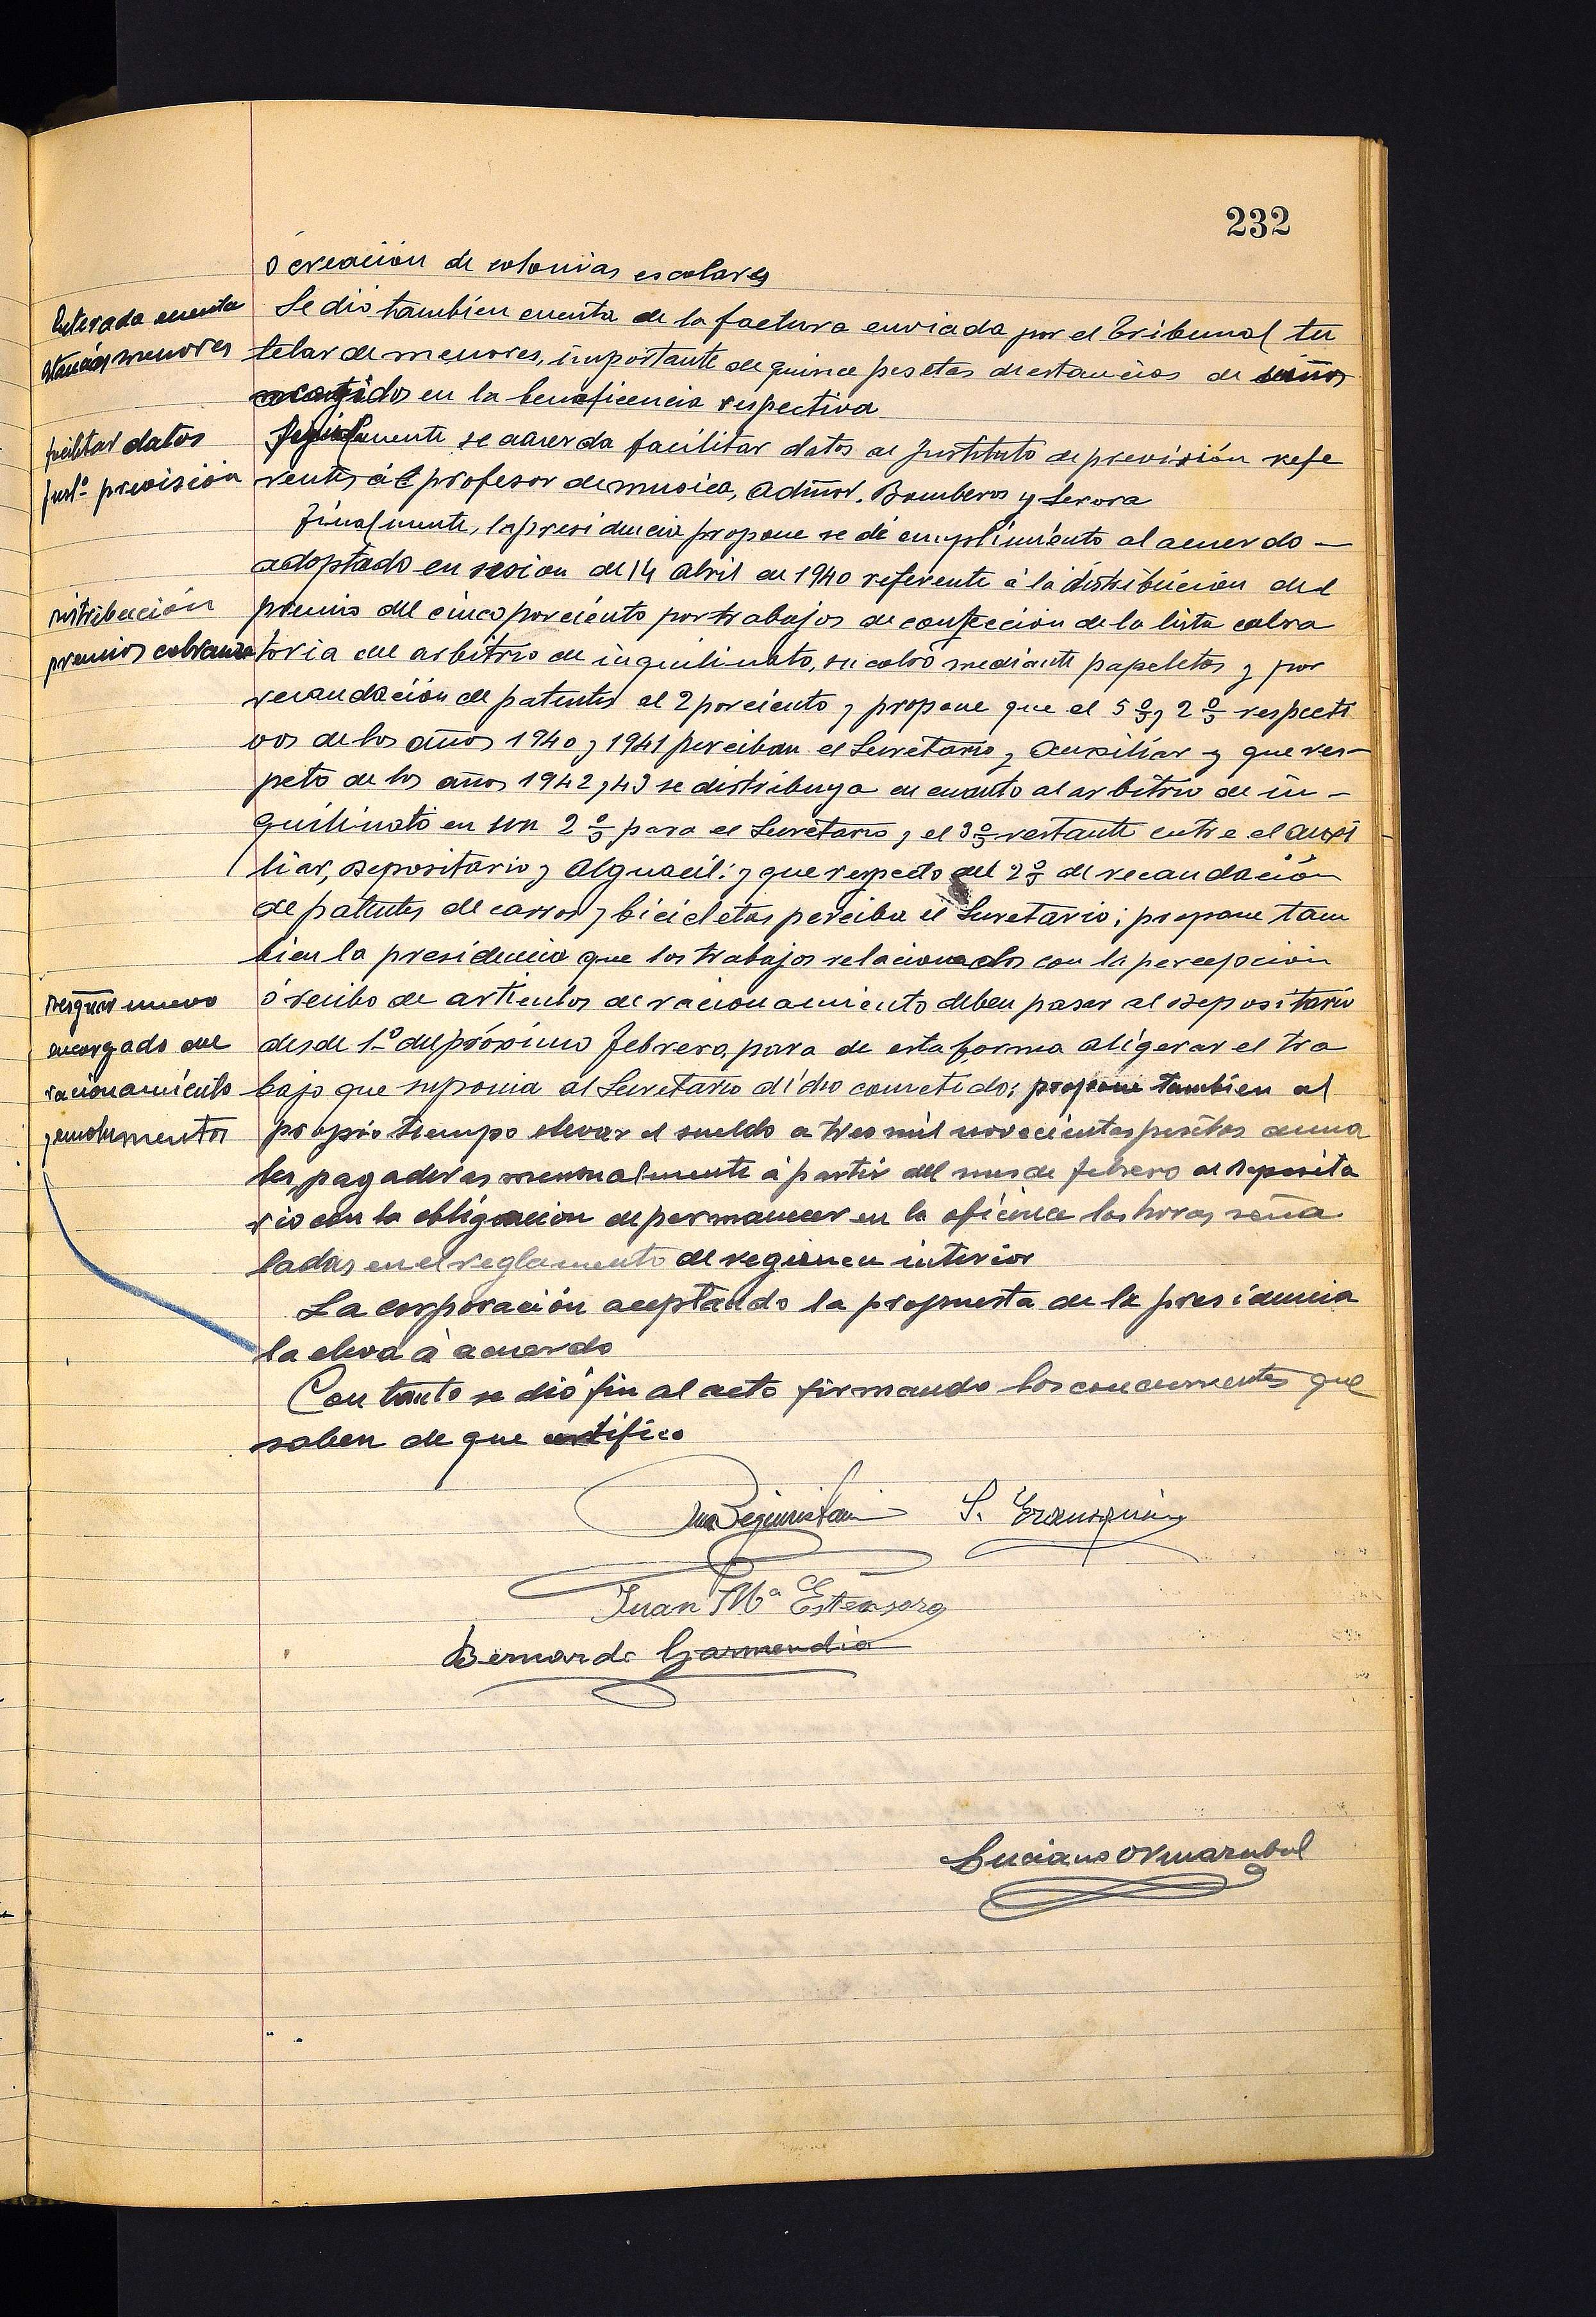 232
ó creación de colonias escolares
Enterada cuenta
estancias menores
Se dió tambien cuenta de la factura enviada por el Tribunal tu
telar de menores, importante de quince pesetas de estancias de niños
acogidos en la beneficencia respectiva
facilitar datos
Inst.º previsión
Igualmente se acuerda facilitar datos al Instituto de previsión refe
rentes al profesor de musica, Admor. Bomberos y Serora
Finalmente, la presidencia propone se dé cumplimiento al acuerdo —
adoptado en sesion de 14 Abril de 1940 referente à la distribución del
distribución
premios cobranza
premio del cinco por ciento por trabajos de confección de la lista cobra
toria del arbitrio de inquilinato, su cobro mediante papeletas y por
recaudación de patentes el 2 por ciento y propone que el 5 % y 2 % respecti
vos de los años 1940 y 1941 perciban el Secretario y Auxiliar y que res-
peto de los años 1942 y 43 se distribuya en cuanto al arbitrio de in-
quilinato en un 2 % para el Secretario y el 3 % restante entre el auxi
liar, Depositario y Alguacil: y que respecto del 2 % de recaudación
de patentes de carros y bicicletas perciba el Secretario; propone tam
bien la presidencia que los trabajos relacionados con la percepción
Desgnar nuevo
encargado del
racionamiento
y emolumentos
ó recibo de articulos de racionamiento deben pasar al Depositario
desde 1.º del próximo Febrero, para de esta forma aligerar el tra
bajo que suponia al Secretario dicho cometido; propone tambien al
propio tiempo elevar el sueldo a tres mil novecientas pesetas anua
les, pagaderas mensualmente á partir del mes de febrero al Deposita
rio con la obligacion de permanecer en la oficina las horas seña
ladas en el reglamento de regimen interior
La corporación aceptando la propuesta de la presidencia
la eleva à acuerdo
Con tanto se dió fin al acto firmando los concurrentes que
saben de que certifico
Juan Mª Estensoro
Bernardo Garmendia
Luciano Ormazabal